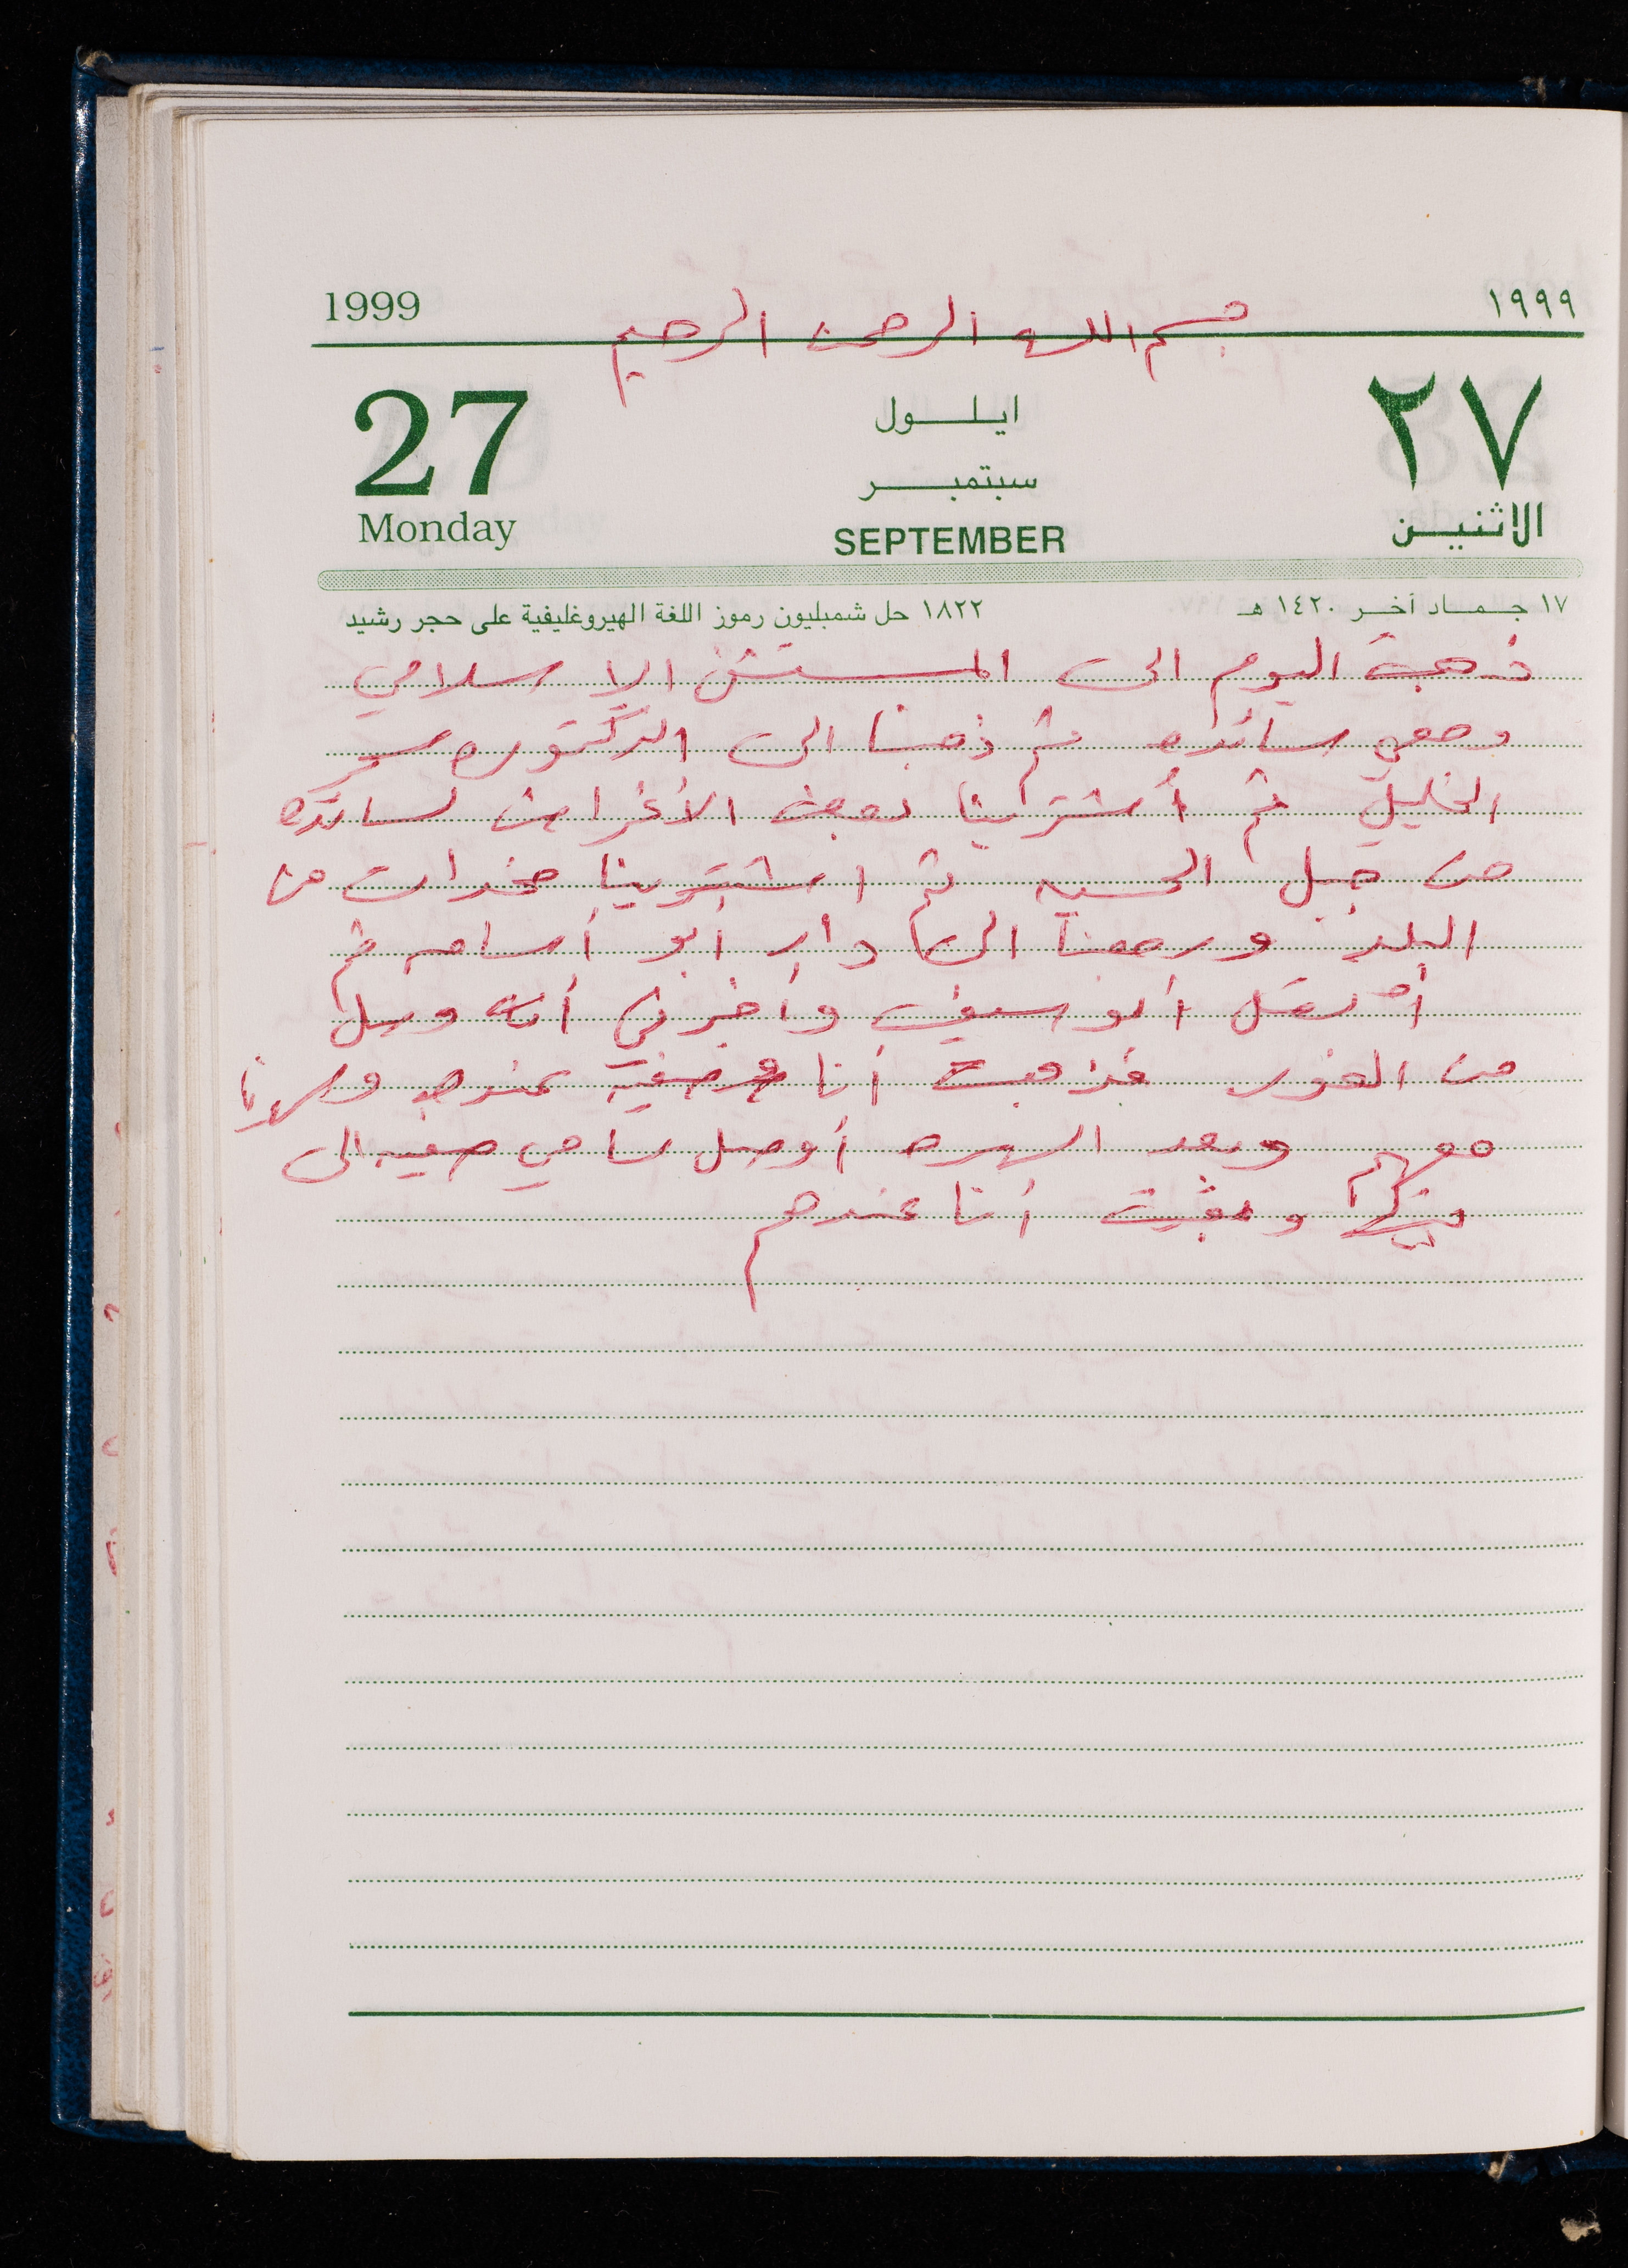 1999 بسم الله الرحمن الرحيم ١٩٩٩
27 ايلول ٢٧
سبتمبر
Monday SEPTEMBER الاثنين
١٧ جماد آخر ١٤٢٠ هـ ١٨٢٢ حل شمبليون رموز اللغة الهيروغليفية على حجر رشيد
ذهبت اليوم الى المستشفى الاسلامي
ومعي سائده ثم ذهبنا الى الدكتوره سحر
الخليل ثم أشترينا بعض الأغراض لسائده
من جبل الحسين ثم اشترينا خضرات من
البلد ورجعنا الى دار أبو أسامه ثم
أتصل أبو سيف وأخبرني أنه وصل
من الغور فذهبت أنا وصفية عندهم وسهرنا
معهم وبعد السهره أوصل سامي صفيه الى
بيتها وبقيت أنا عندهم